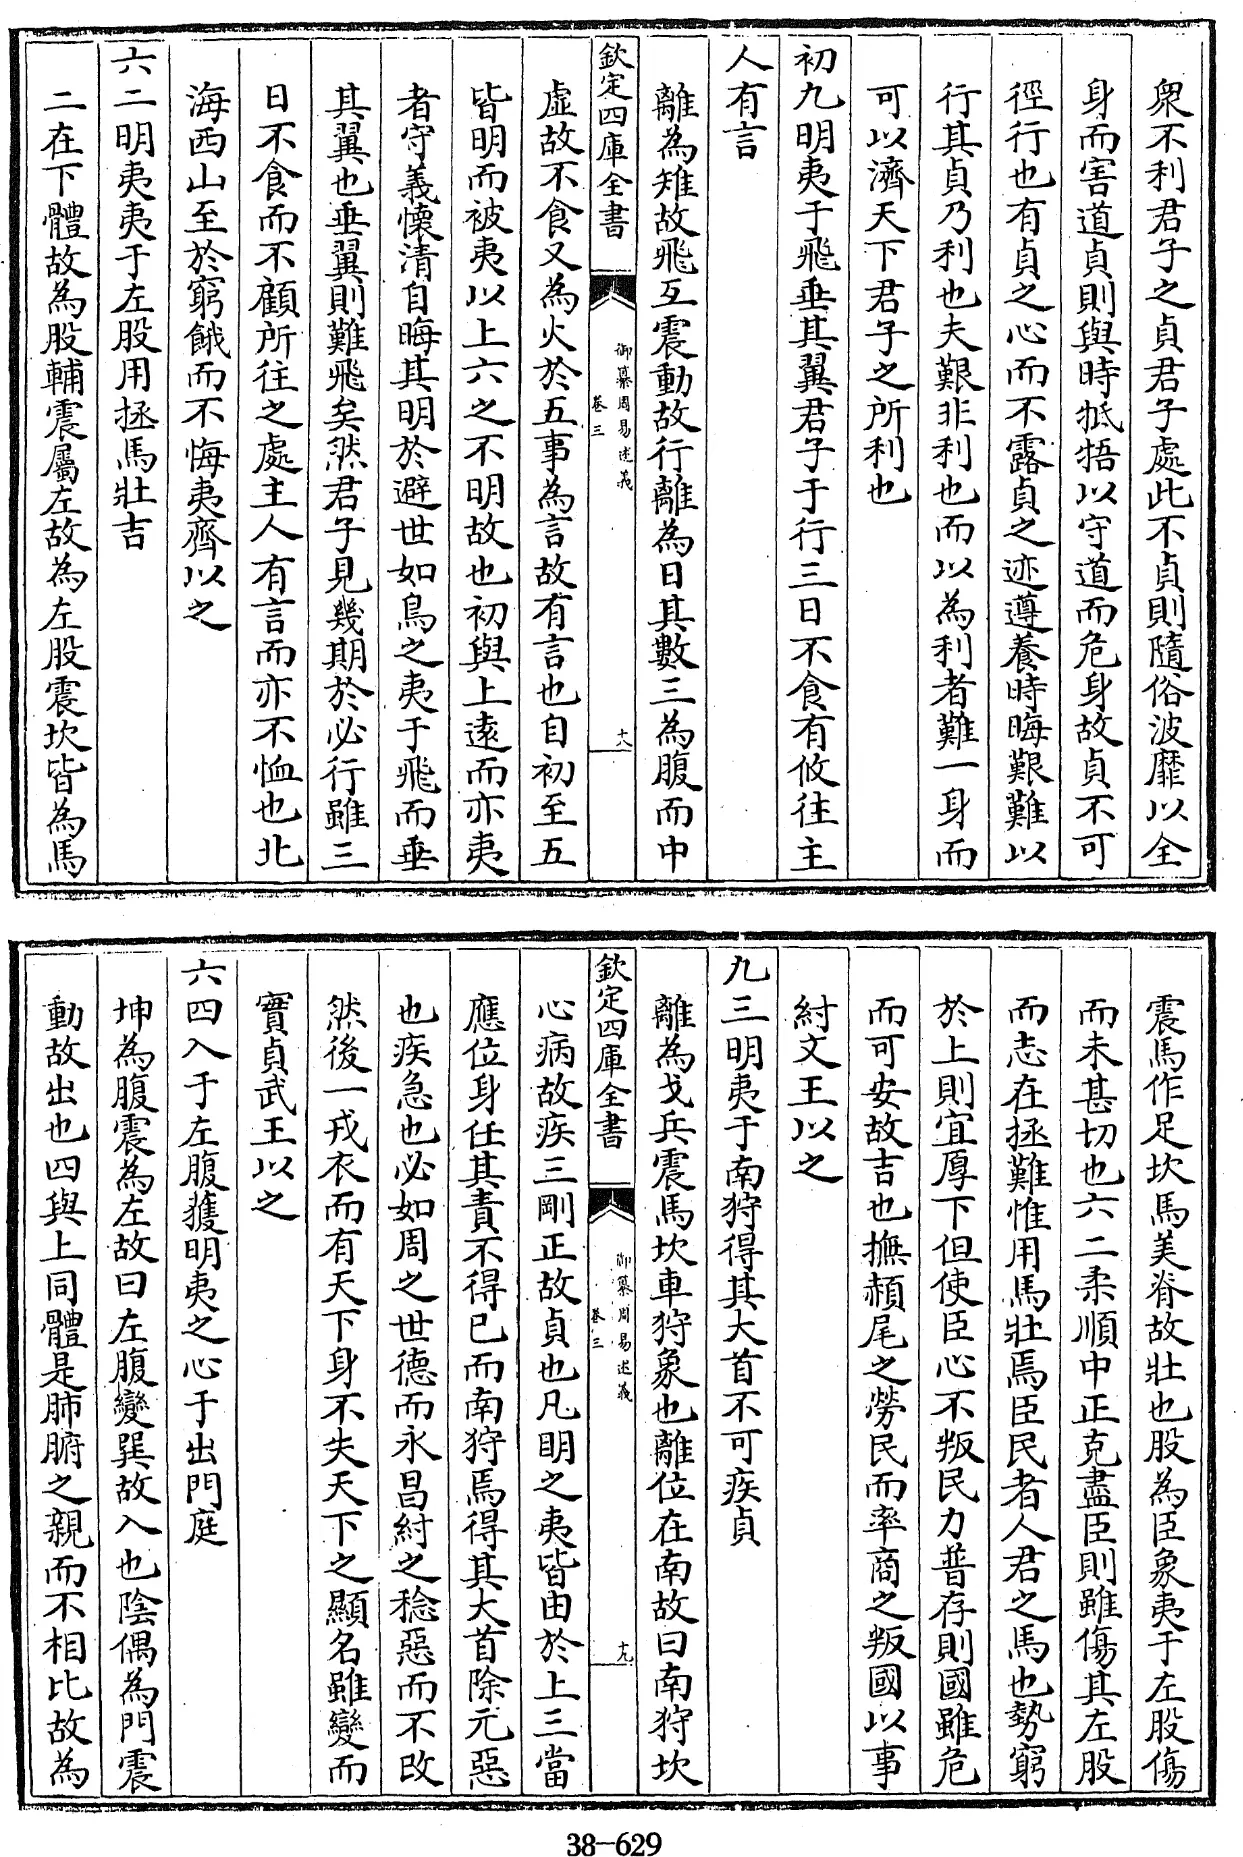 衆不利君子之貞君子處此不貞則隨俗波靡以全
身而害道貞則與時牴牾以守道而危身故貞不可
徑行也有貞之心而不露貞之迹遵養時晦艱難以
行其貞乃利也夫艱非利也而以為利者難一身而
可以濟天下君子之所利也
初九明夷于飛垂其翼君子于行三日不食有攸往主
人有言
離為雉故飛互震動故行離為日其數三為腹而中
欽定四庫全書
御纂周易述義
卷三
十八
虛故不食又為火於五事為言故有言也自初至五
皆明而被夷以上六之不明故也初與上遠而亦夷
者守義懷清自晦其明於避世如鳥之夷于飛而垂
其翼也垂翼則難飛矣然君子見幾期於必行雖三
日不食而不顧所往之處主人有言而亦不恤也北
海西山至於窮餓而不悔夷齊以之
六二明夷夷于左股用拯馬壯吉
二在下體故為股輔震屬左故為左股震坎皆為馬
震馬作足坎馬美脊故壯也股為臣象夷于左股傷
而未甚切也六二柔順中正克盡臣則雖傷其左股
而志在拯難惟用馬壯焉臣民者人君之馬也勢窮
於上則宜厚下但使臣心不叛民力普存則國雖危
而可安故吉也撫赬尾之勞民而率商之叛國以事
紂文王以之
九三明夷于南狩得其大首不可疾貞
離為戈兵震馬坎車狩象也離位在南故曰南狩坎
欽定四庫全書
御纂周易述義
卷三
十九
心病故疾三剛正故貞也凡明之夷皆由於上三當
應位身任其責不得已而南狩焉得其大首除元惡
也疾急也必如周之世德而永昌紂之稔惡而不改
然後一戎衣而有天下身不失天下之顯名雖變而
實貞武王以之
六四入于左腹獲明夷之心于出門庭
坤為腹震為左故曰左腹變巽故入也陰偶為門震
動故出也四與上同體是肺腑之親而不相比故為
38-629